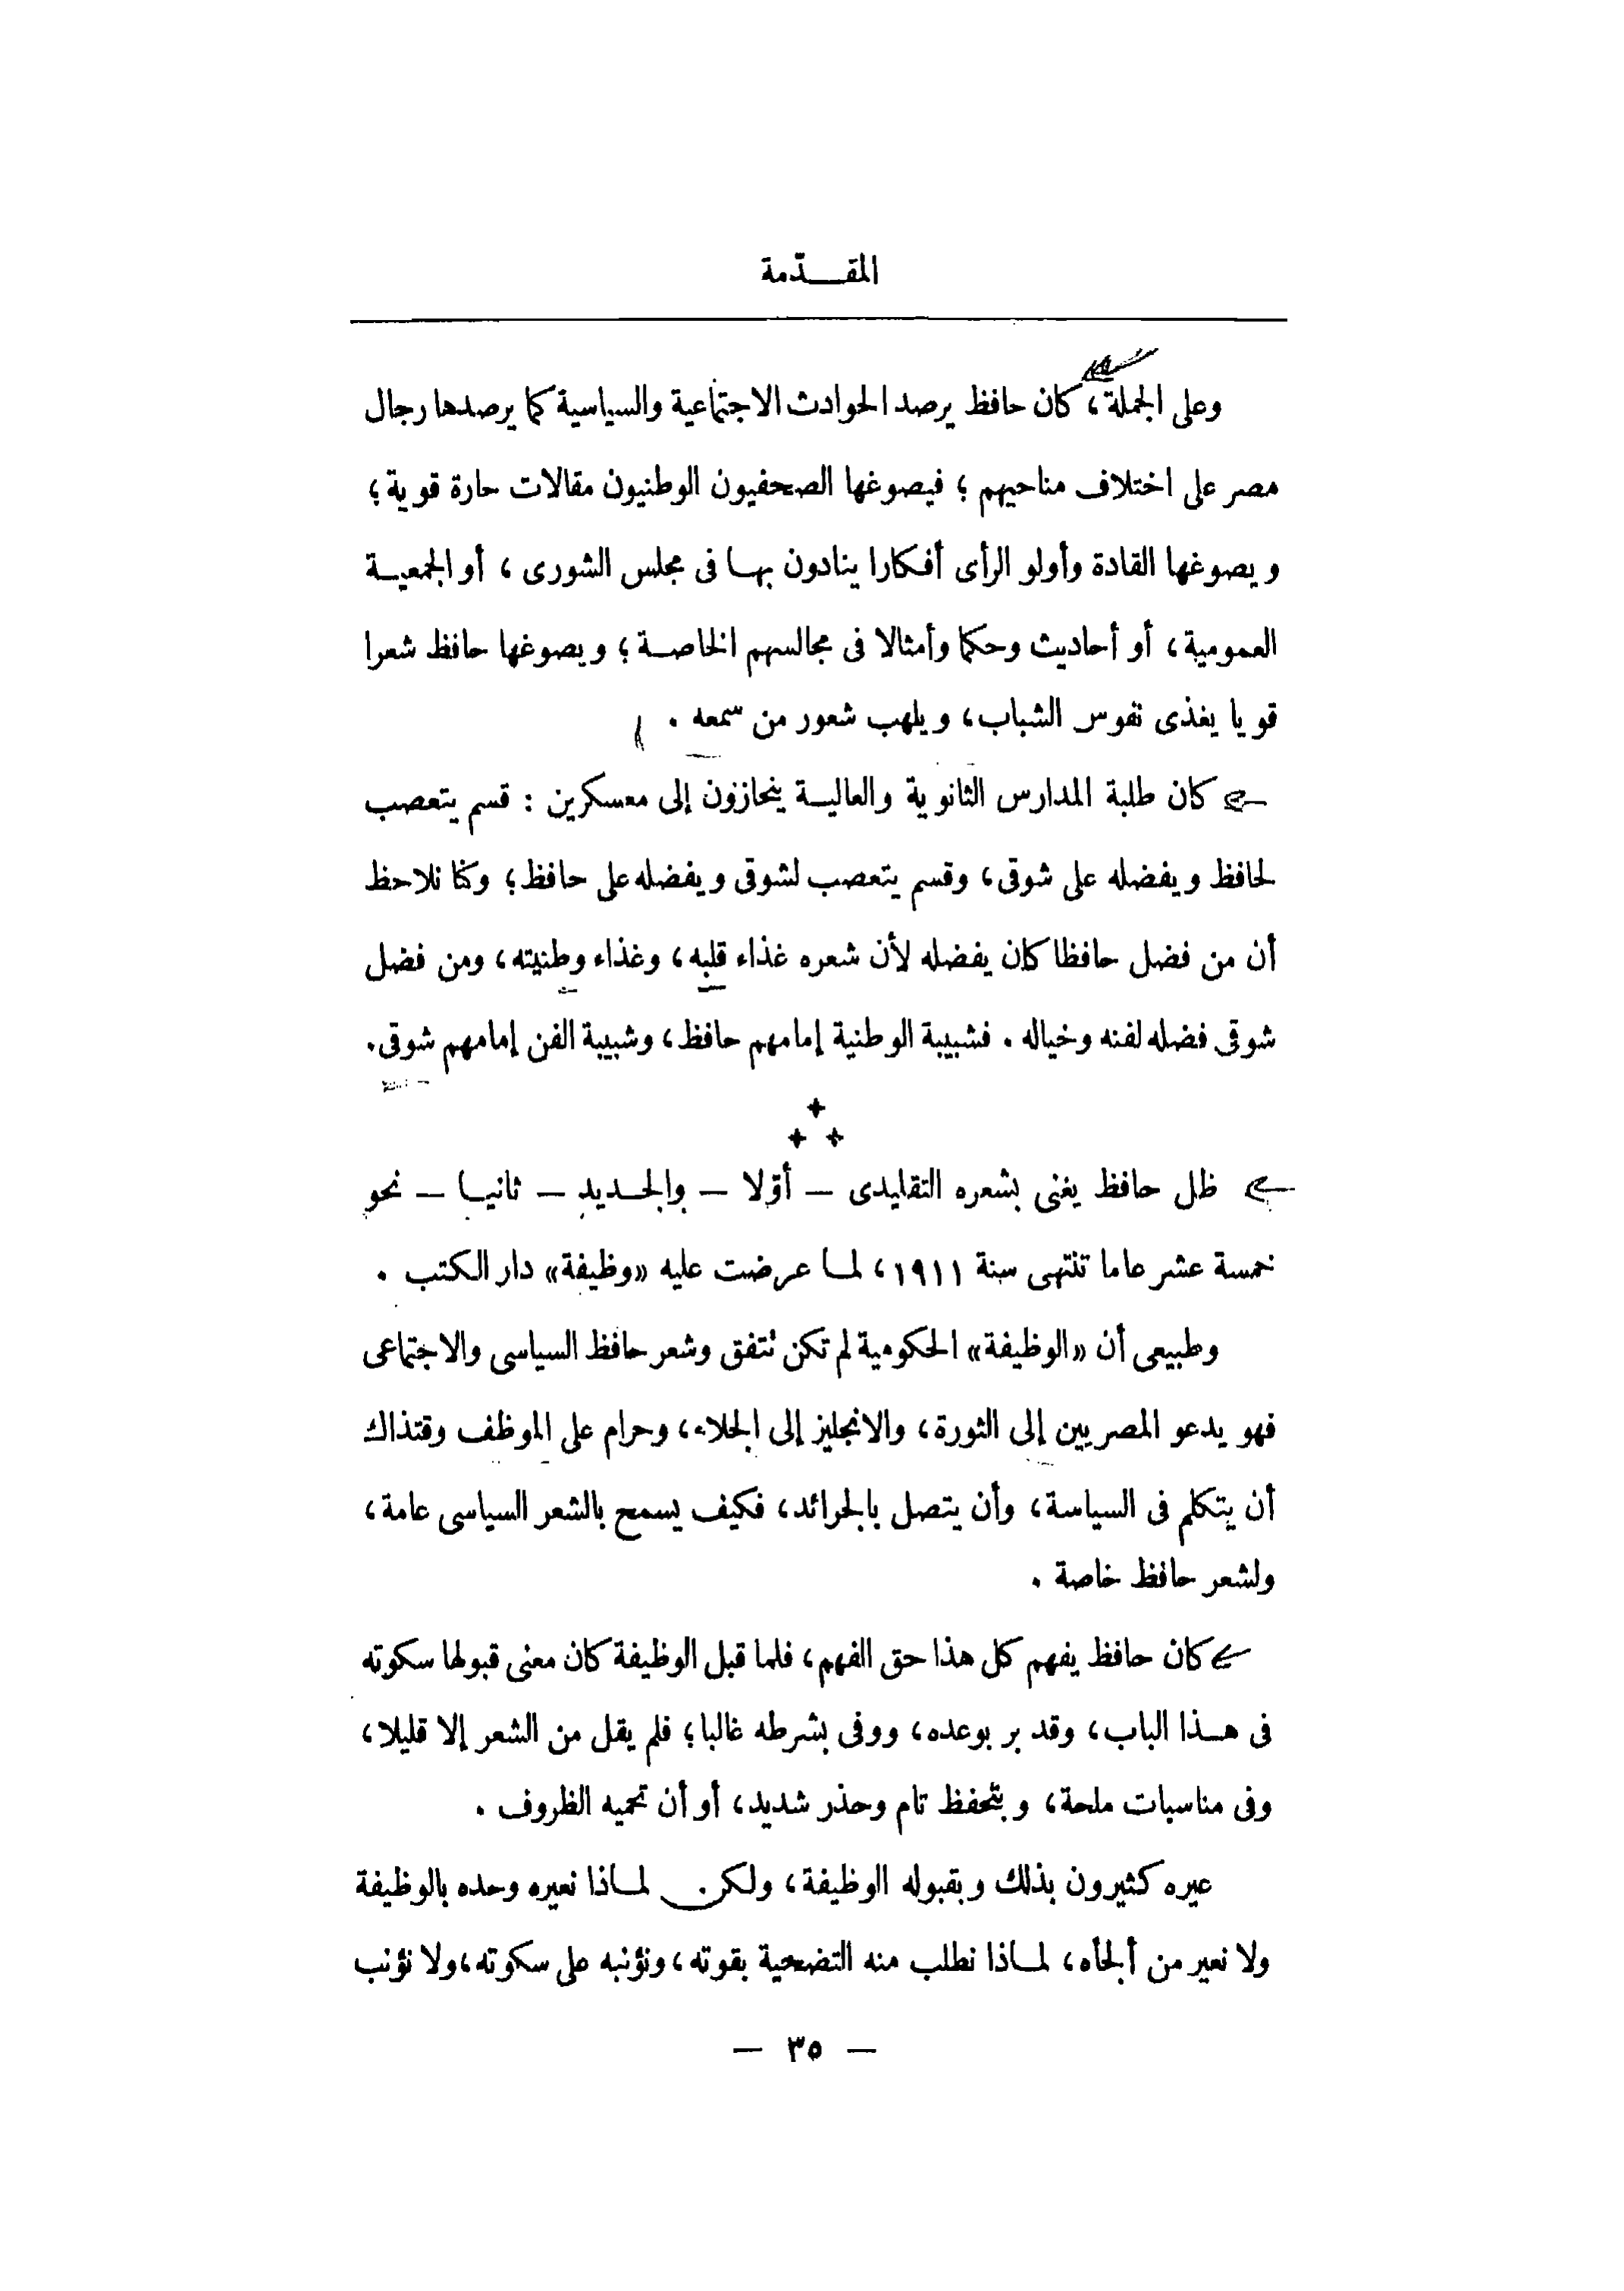 المقـــدّمة
وعلى الجملة، كان حافظ يرصد الحوادث الاجتماعية والسياسية كما يرصدها رجال
مصر على اختلاف مناحيهم ؛ فيصوغها الصحفيون الوطنيون مقالات حارة قوية ؛
ويصوغها القادة وأولو الرأى أفكارا ينادون بهـا فى مجلس الشورى ، أو الجمعيــة
العمومية ، أو أحاديث وحكما وأمثالا فى مجالسهم الخاصـة ؛ ويصوغها حافظ شعرا
قويا يغذى نفوس الشباب، ويلهب شعور من سمعه .
كان طلبة المدارس الثانوية والعاليــة ينحازون إلى معسكرين : قسم يتعصب
لحافظ ويفضله على شوقى، وقسم يتعصب لشوقى ويفضله على حافظ؛ وكنا نلاحظ
أن من فضل حافظا كان يفضله لأن شعره غذاء قلبه، وغذاء وطنيته، ومن فضل
شوقى فضله لفنه وخياله . فشبيبة الوطنية إمامهم حافظ، وشبيبة الفن إمامهم شوقى.
✦
✦ ✦
ظل حافظ يغنى بشعره التقليدى — أوّلا — والجـديد — ثانيـا — نحو
خمسة عشر عاما تنتهى سنة ١٩١١، لمـا عرضت عليه «وظيفة» دار الكتب .
وطبيعى أن «الوظيفة» الحكومية لم تكن تتفق وشعر حافظ السياسى والاجتماعى
فهو يدعو المصريين إلى الثورة، والانجليز إلى الجلاء، وحرام على الموظف وقتذاك
أن يتكلم فى السياسة، وأن يتصل بالجرائد، فكيف يسمح بالشعر السياسى عامة،
ولشعر حافظ خاصة .
كان حافظ يفهم كل هذا حق الفهم، فلما قبل الوظيفة كان معنى قبولها سكوته
فى هـذا الباب، وقد بر بوعده، ووفى بشرطه غالبا؛ فلم يقل من الشعر إلا قليلا،
وفى مناسبات ملحة، وبتحفظ تام وحذر شديد، أو أن تحميه الظروف .
عيره كثيرون بذلك وبقبوله الوظيفة، ولكن لمـاذا نعيره وحده بالوظيفة
ولا نعير من ألجأه، لمـاذا نطلب منه التضحية بقوته، ونؤنبه على سكوته، ولا نؤنب
— ٣٥ —